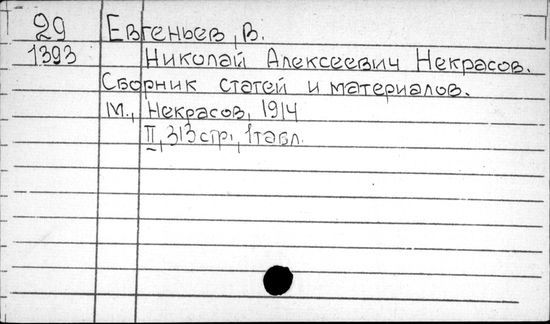 29 Евгеньев, В.
1393 Николай Алексеевич Некрасов.
Сборник статей и материалов.
М., Некрасов, 1914
II, 313 стр., 1 табл.